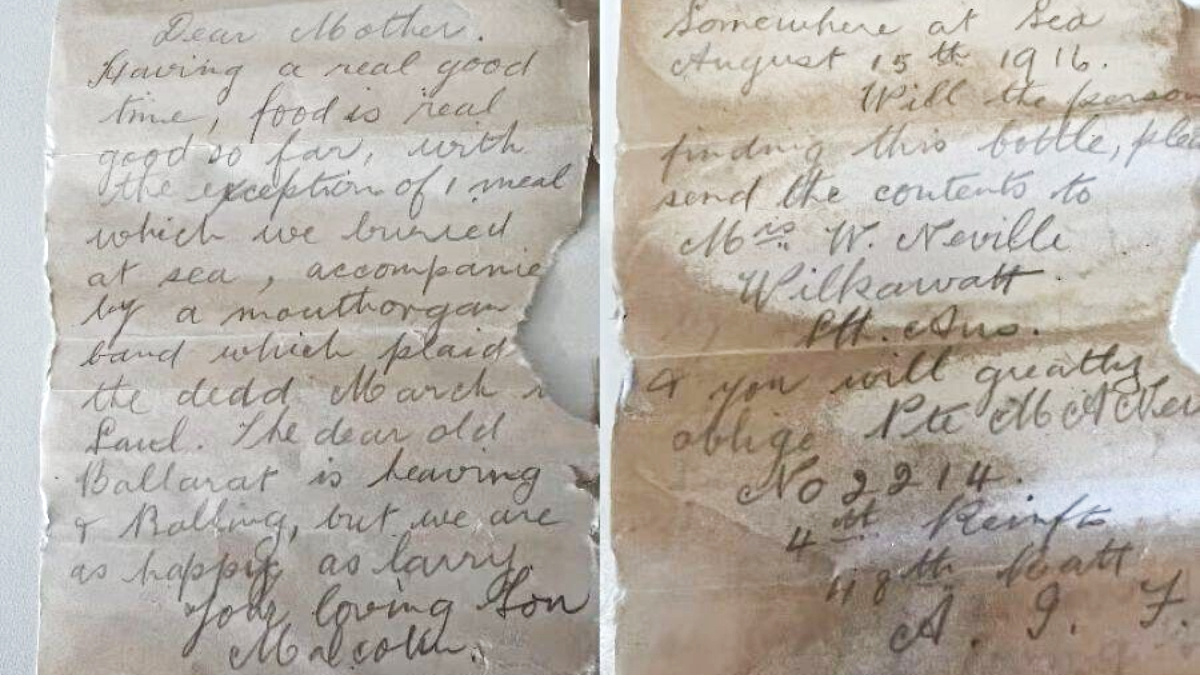 Dear Mother.
Having a real good
time, food is real
good so far, with
the exception of 1 meal
which we buried
at sea, accompanie
by a mouthorgan
band which plaid
the dedd March
Saul. The dear old
Ballarat is heaving
& Rolling, but we are
as happy as larry
Your loving Son
Malcolm.
Somewhere at Sea
August 15th 1916.
Will the perso
finding this bottle, plea
send the contents to
Mrs W. Neville
Wilkawatt.
Sth. Aus.
& you will greatly
oblige Pte M A Nev
No 2214.
4th Reinfts
48th Batt
A. I. F.